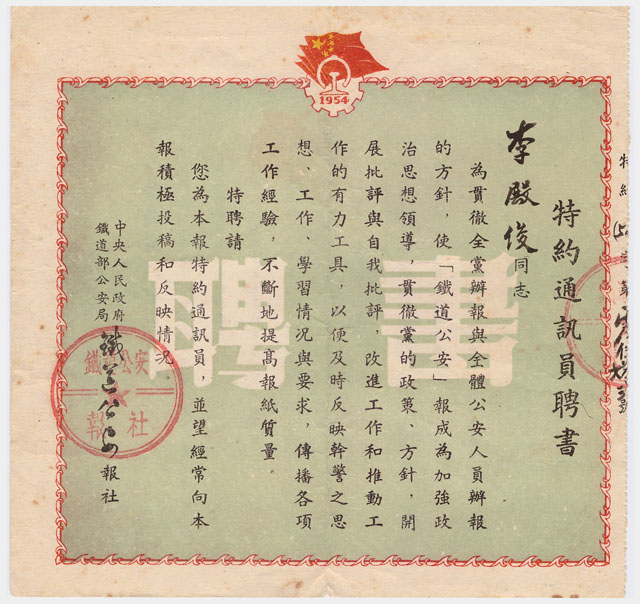 1954
特約
特約通訊員聘書
李殿俊同志
為貫徹全黨辦報與全體公安人員辦報
的方針，使「鐵道公安」報成為加強政
治思想領導，貫徹黨的政策、方針，開
展批評與自我批評，改進工作和推動工
作的有力工具，以便及時反映幹警之思
想、工作、學習情況與要求，傳播各項
工作經驗，不斷地提高報紙質量。
特聘請
您為本報特約通訊員，並望經常向本
報積極投稿和反映情況
中央人民政府
鐵道部公安局
鐵道公安報社
聘書
鐵道公安
報社